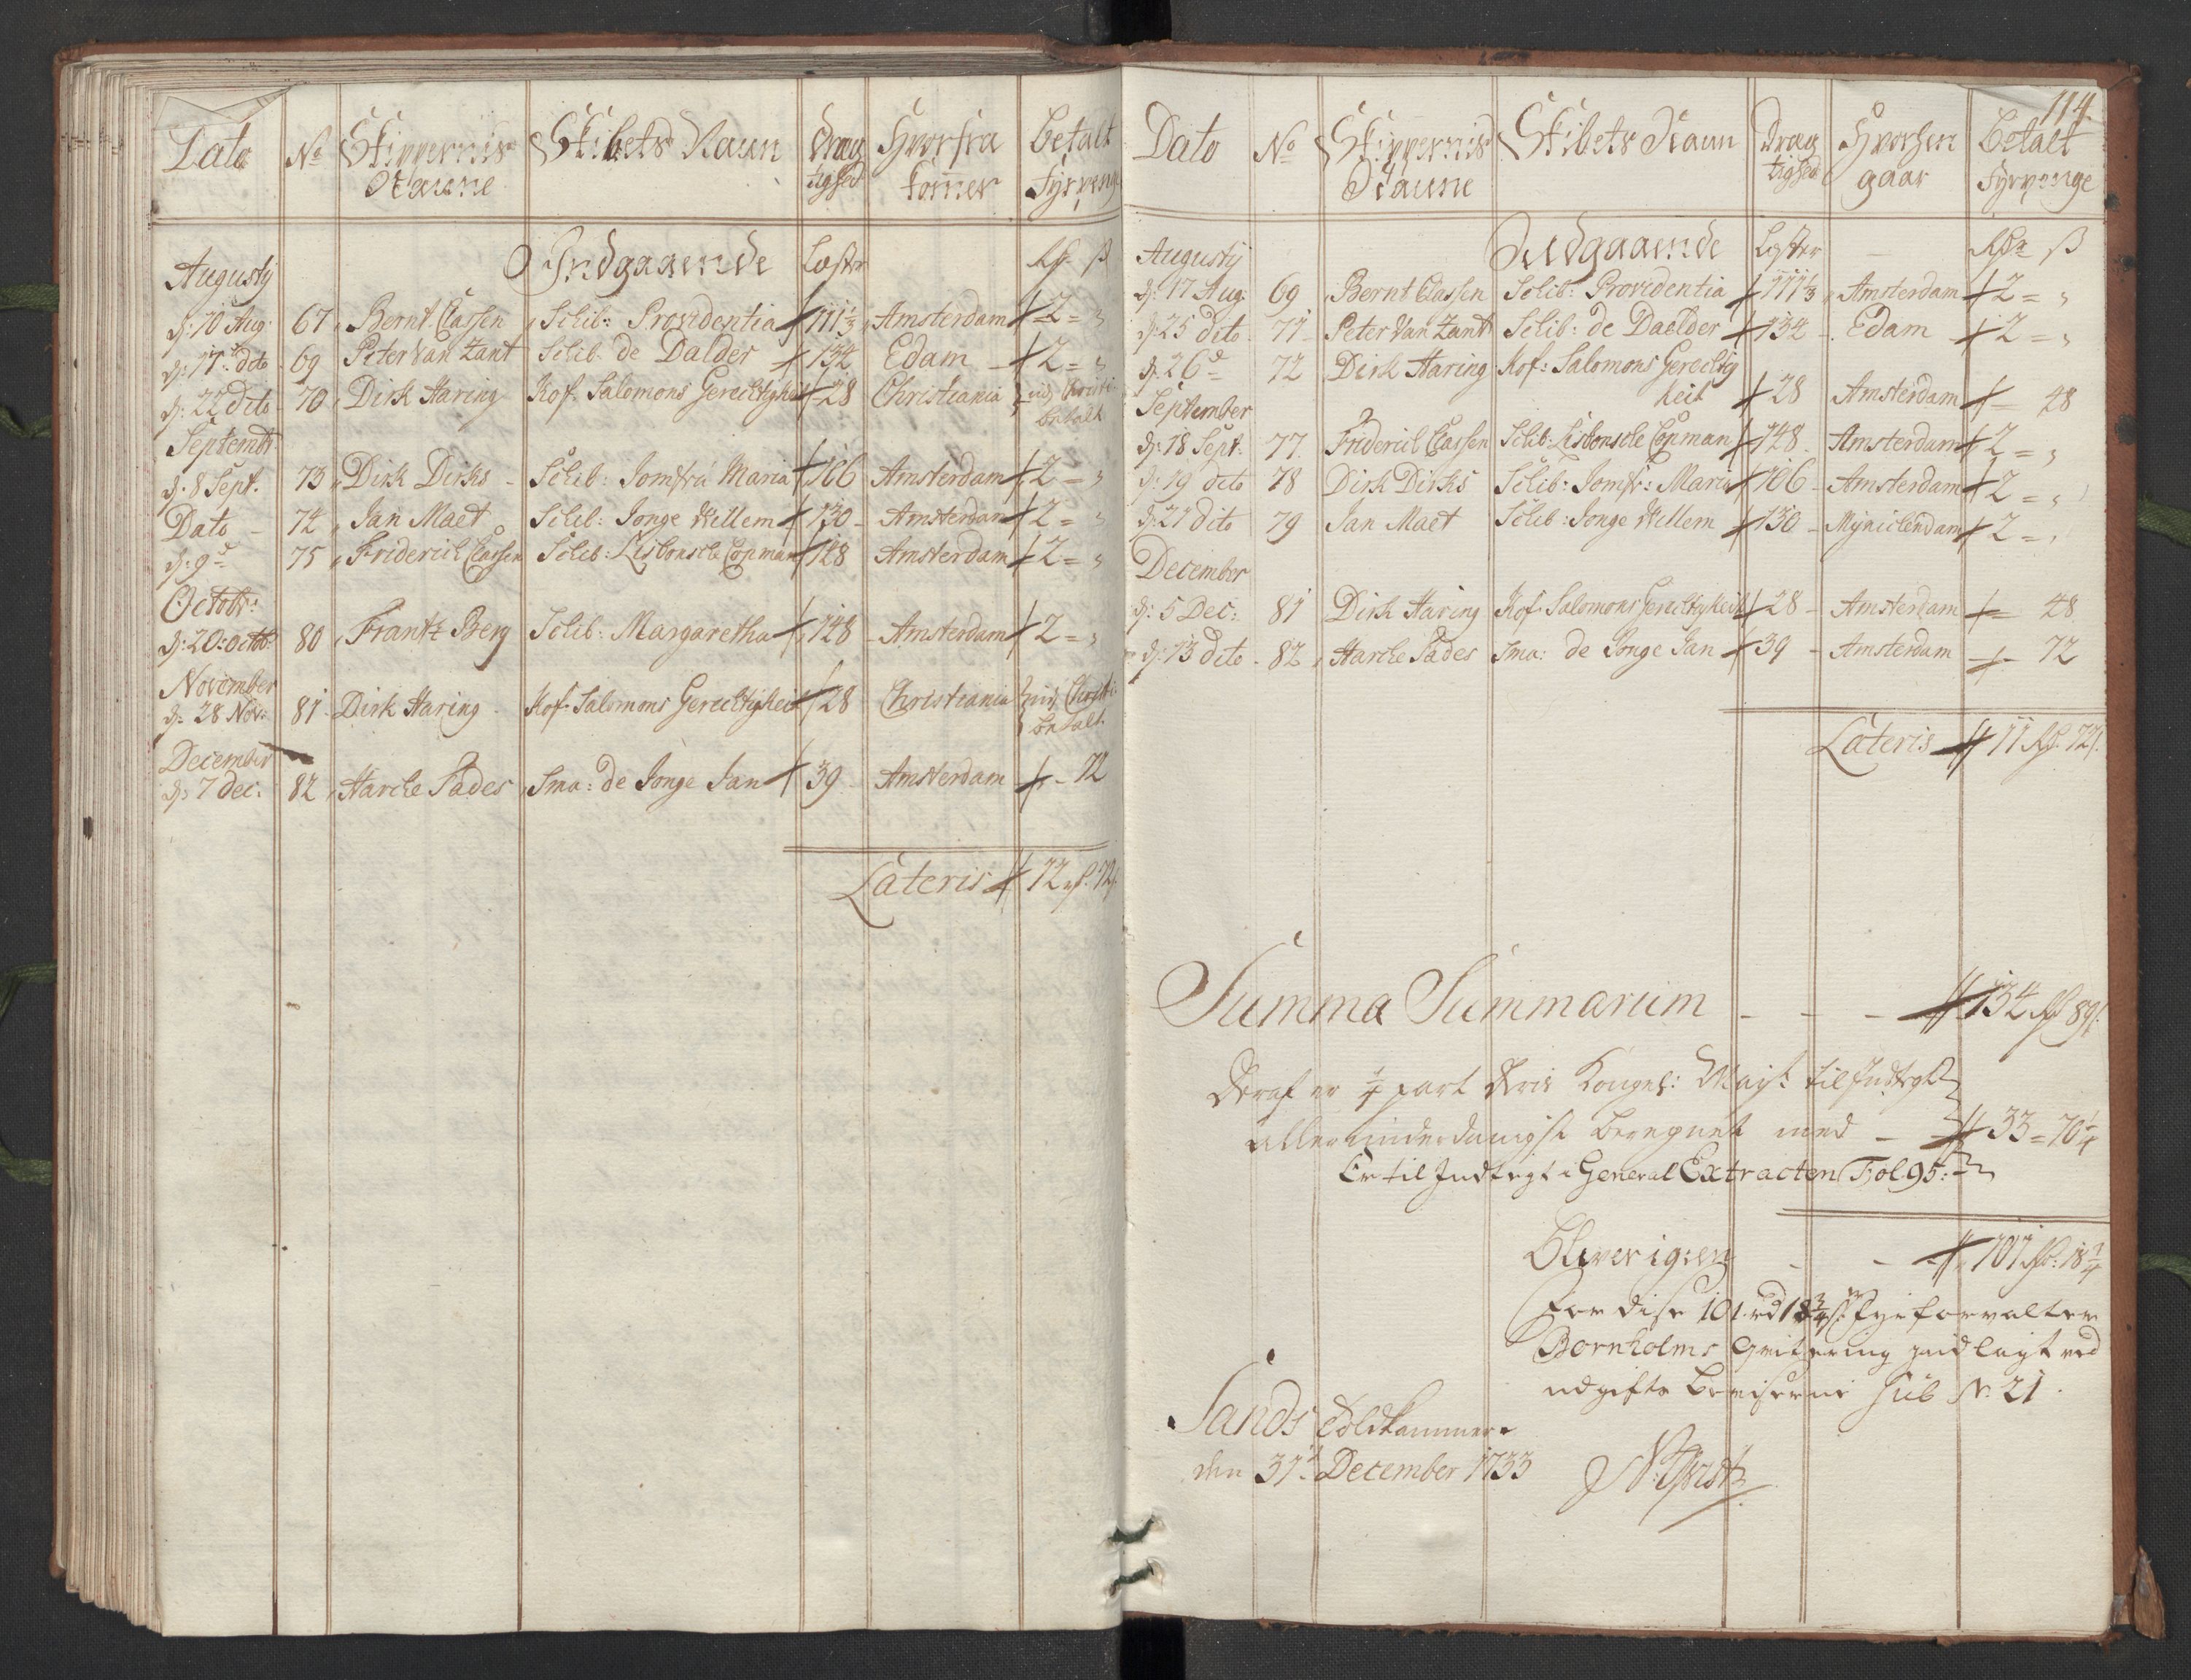 Dato No Skippernis Skibets Naun Dræg Hvorfra Betalt
Naune tighed komer Fyrpenge
Indgaaende Læster Rdr ß
Augustij
d: 10 Aug: 67 Bernt Classen Schib: Providentia 111 1/3 Amsterdam 2 =
d: 17 dito 69 Peter Van Zant Schib: de Dalder 134 Edam 2 =
d: 22 dito 70 Dirk Haring Hof: Salomons Gerechtigheit 28 Christiania udj Christi:
betalt
Septembr
d: 8 Sept. 73 Dirk Dirks Schib: Jomfru Maria 106 Amsterdam 2 =
Dato 74 Jan Maet Schib: Jonge Willem 130 Amsterdam 2 =
d: 9d 75 Friderich Classen Schib: Lisbonsche Copman 128 Amsterdam 2 =
Octobr:
d: 20: octob: 80 Frantz Berg Schib: Margaretha 148 Amsterdam 2 =
November
d: 28 Nov: 81 Dirk Haring Hof: Salomons Gerechtigheit 28 Christiania udj Christi:
betalt
December
d: 7 dec: 82 Harche Sades Sma: de Jonge Jan 39 Amsterdam - 72
Lateris 12 rd. 72 ß.
114.
Dato No Skippernis Skibets Naun Dræg Hvorhen Betalt
Naune tighed gaar Fyrpenge
Udgaaende Læster Rdr ß
Augustij
d: 17 Aug: 69 Bernt Classen Schib: Providentia 111 1/3 Amsterdam 2 =
d: 25 dito 71 Peter Van Zant Schib: de Daelder 134 Edam 2 =
d: 26d 72 Dirk Haring Hof: Salomons Gerechtig
heit 28 Amsterdam = 48
September
d: 18 Sept: 77 Friderich Classen Schib: Lisbonsche Copman 148 Amsterdam 2 =
d: 19 dito 78 Dirk Dirks Schib: Jomfr: Maria 106 Amsterdam 2 =
d: 21 dito 79 Jan Maet Schib: Jonge Willem 130 Mynichendam 2 =
December
d: 5 Dec: 81 Dirk Haring Hof: Salomons Gerechtigheit 28 Amsterdam = 48
d: 13 dito 82 Harche Sades Sma: de Jonge Jan 39 Amsterdam - 72
Lateris 11 Rd. 72 ß.
Summa Summarum - - - 134 Rd 89 ß.
Deraf er 1/4 part Dris Kongel: Mayt: til Indtegt
allerunderdanigst beregnet med - 33 = 70 1/4
Er til Indtegt i General Extracten Fol. 95:
Bliver igien - - 101 Rd: 18 3/4
For dise 101 rd 18 3/4 ß: er Fyrforvalter
Bornholms Qvitering her indlagt ved
udgifts Beviserne sub No 21.
Sands Toldkammer
den 31t December 1733